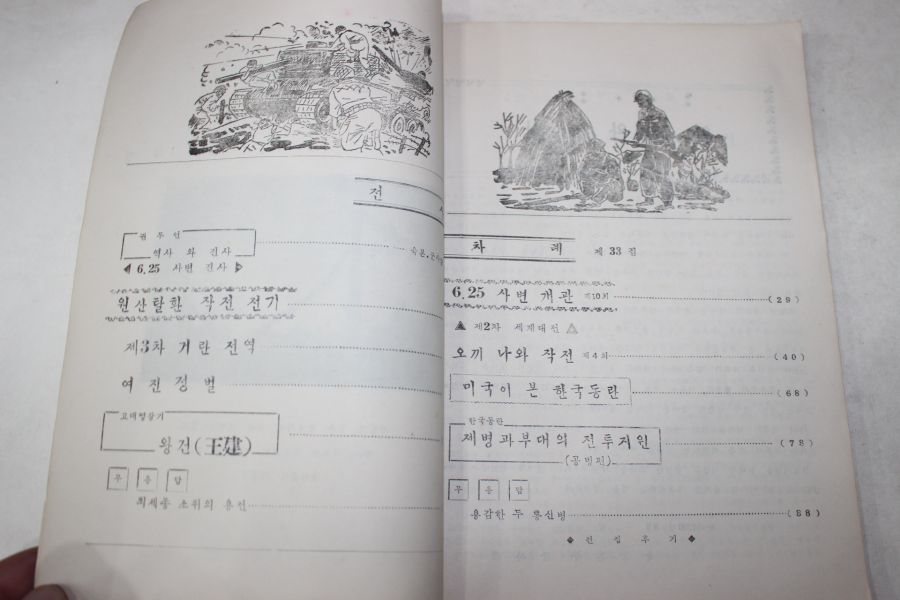 전
권두언
역사 와 전사
6.25 사변 전사
원산탈환 작전 전기
제3차 거란 전역
여진정벌
고대명장기
왕건(王建)
무 용 담
최세종 소위의 용전
차 례 제 33 집
6.25 사변 개관 제10회 (29)
제2차 세계대전
오끼나와 작전 제4회 (40)
미국이 본 한국동란 (68)
한국동란
제병과부대의 전투지원 (78)
(공병편)
무 용 담
용감한 두 통신병 (88)
편 집 후 기